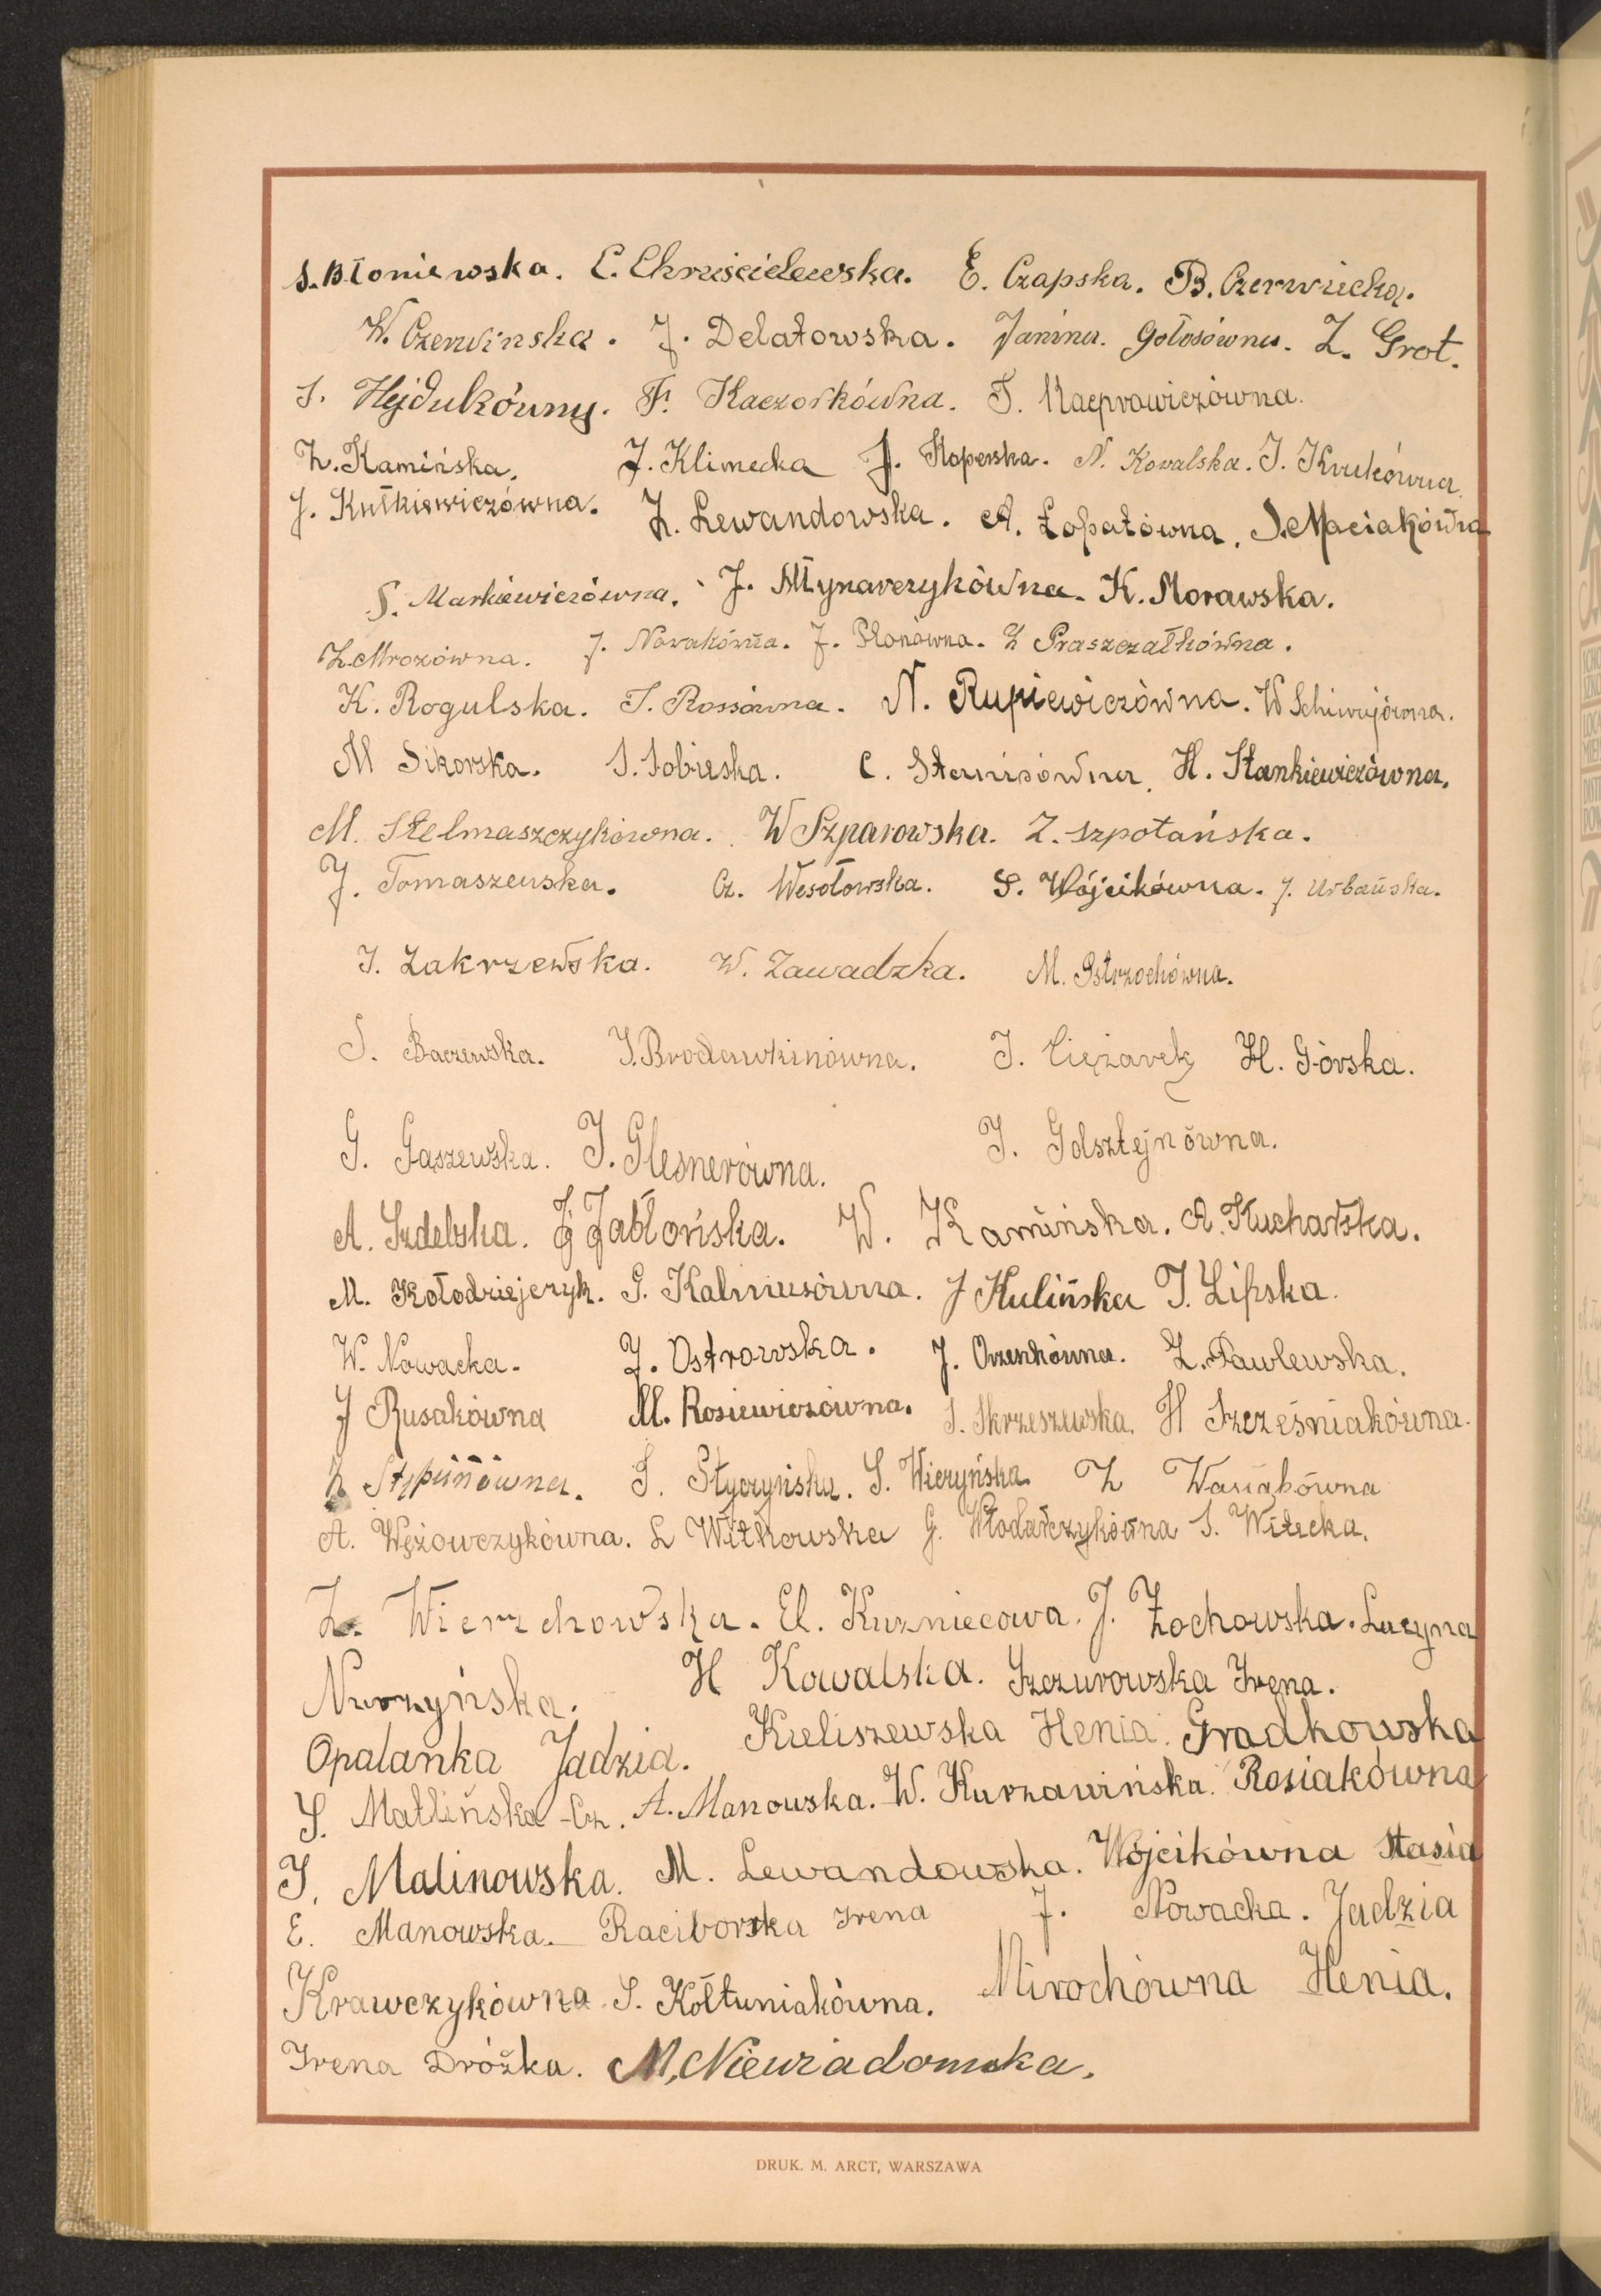 S. Błoniewska. C. Chruścielewska. E. Czapska. B. Czerwiecka.
W. Czerwinska. J. Delatowska. Janina. Gołosówna. Z. Grot.
S. Hejdukówny. F. Kaczorkówna. T. Kacprowiczówna.
Z. Kamińska. J. Klimecka J. Koperska. N. Kowalska. I. Krukówna.
J. Kutkiewiczówna. Z. Lewandowska. A. Łopatówna. S. Maciakówna
S. Markiewiczówna. J. Młynarczykówna. K. Morawska.
Z. Mrozówna. J. Nowakówna. J. Płonówna. Z Praszczałkówna.
K. Rogulska. T. Rossówna. N. Rupiewiczówna. W
M Sikorska. S. Sobieska. C. Stanisówna. H. Stankiewiczówna.
M. Stelmaszczykówna. W Szparowska. Z. Szpotańska.
J. Tomaszewska. Cz. Wesołowska. S. Wójcikówna. J. Urbańska.
I. Zakrzewska. W. Zawadzka. M. Ostrzochówna.
S. Baczewska. I. Brodawkinówna. I. Ciężarek H. Górska.
G. Gąszewska. I. Glesnerówna. I. Golsztejnówna.
A. Izdebska. J Jabłońska. W. Kamińska. A. Kucharska.
M. Kołodziejczyk. G. Kalmusówna. J Kulińska I. Lipska.
W. Nowacka. J. Ostrowska. J. Orzeszkówna. Z. Pawlewska.
J Rusakówna M. Rosiewiczówna. S. Skrzeszewska. H Szcześniakówna.
Stypinówna. S. Styczyńska. S. Wierzyńska Z Wasiakówna
A. Wężowczykówna. L Witkowska G. Włodarczykówna S. Witecka.
Z. Wierzchowska. El. Kuzniecowa. J. Żochowska. Lucyna
Nurzyńska. H Kowalska. Szczurowska Irena.
Opalanka Jadzia. Kieliszewska Henia. Gradkowska
S. Matlińska Cz. A. Manowska. W. Kurzawińska. Rosiakówna
I. Malinowska. M. Lewandowska. Wójcikówna Stasia
E. Manowska. Raciborska Irena J. Nowacka. Jadzia
Krawczykówna S. Kołtuniakówna. Mirochówna Henia.
Irena Dróżka. M. Niewiadomska.
DRUK. M. ARCT, WARSZAWA